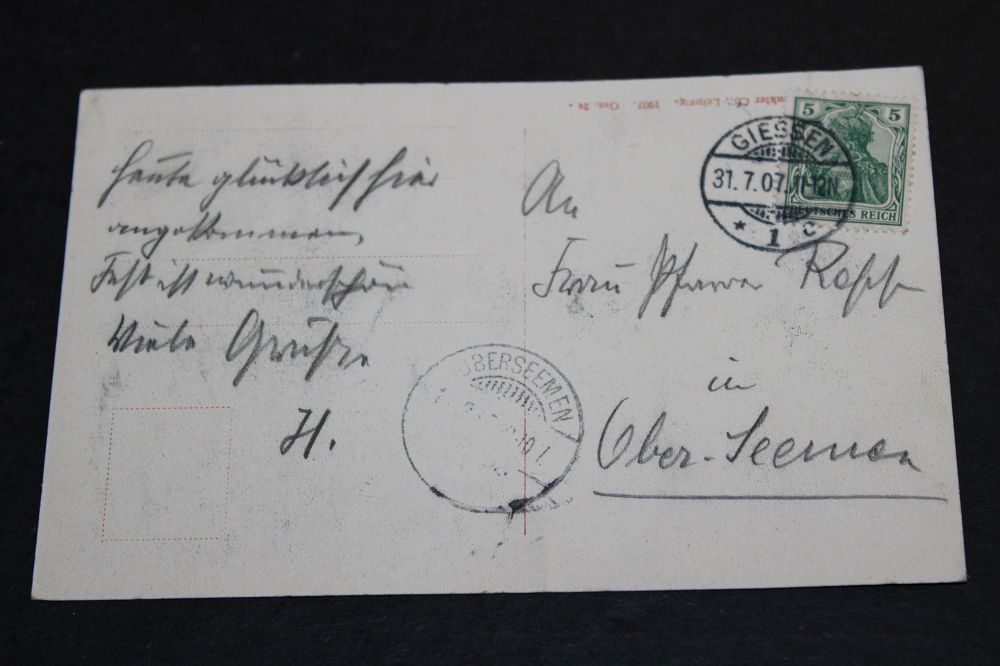 Heute glücklich hier
angekommen,
Fest ist wunderschön
Viele Grüße
H.
nkler Co., Leipzig. 1907. Gss. 24.
5 5
DEUTSCHES REICH
GIESSEN
31.7.07. 11-12N.
* 1 C
An
Frau Pfarrer
in
Ober-Seemen
OBERSEEMEN